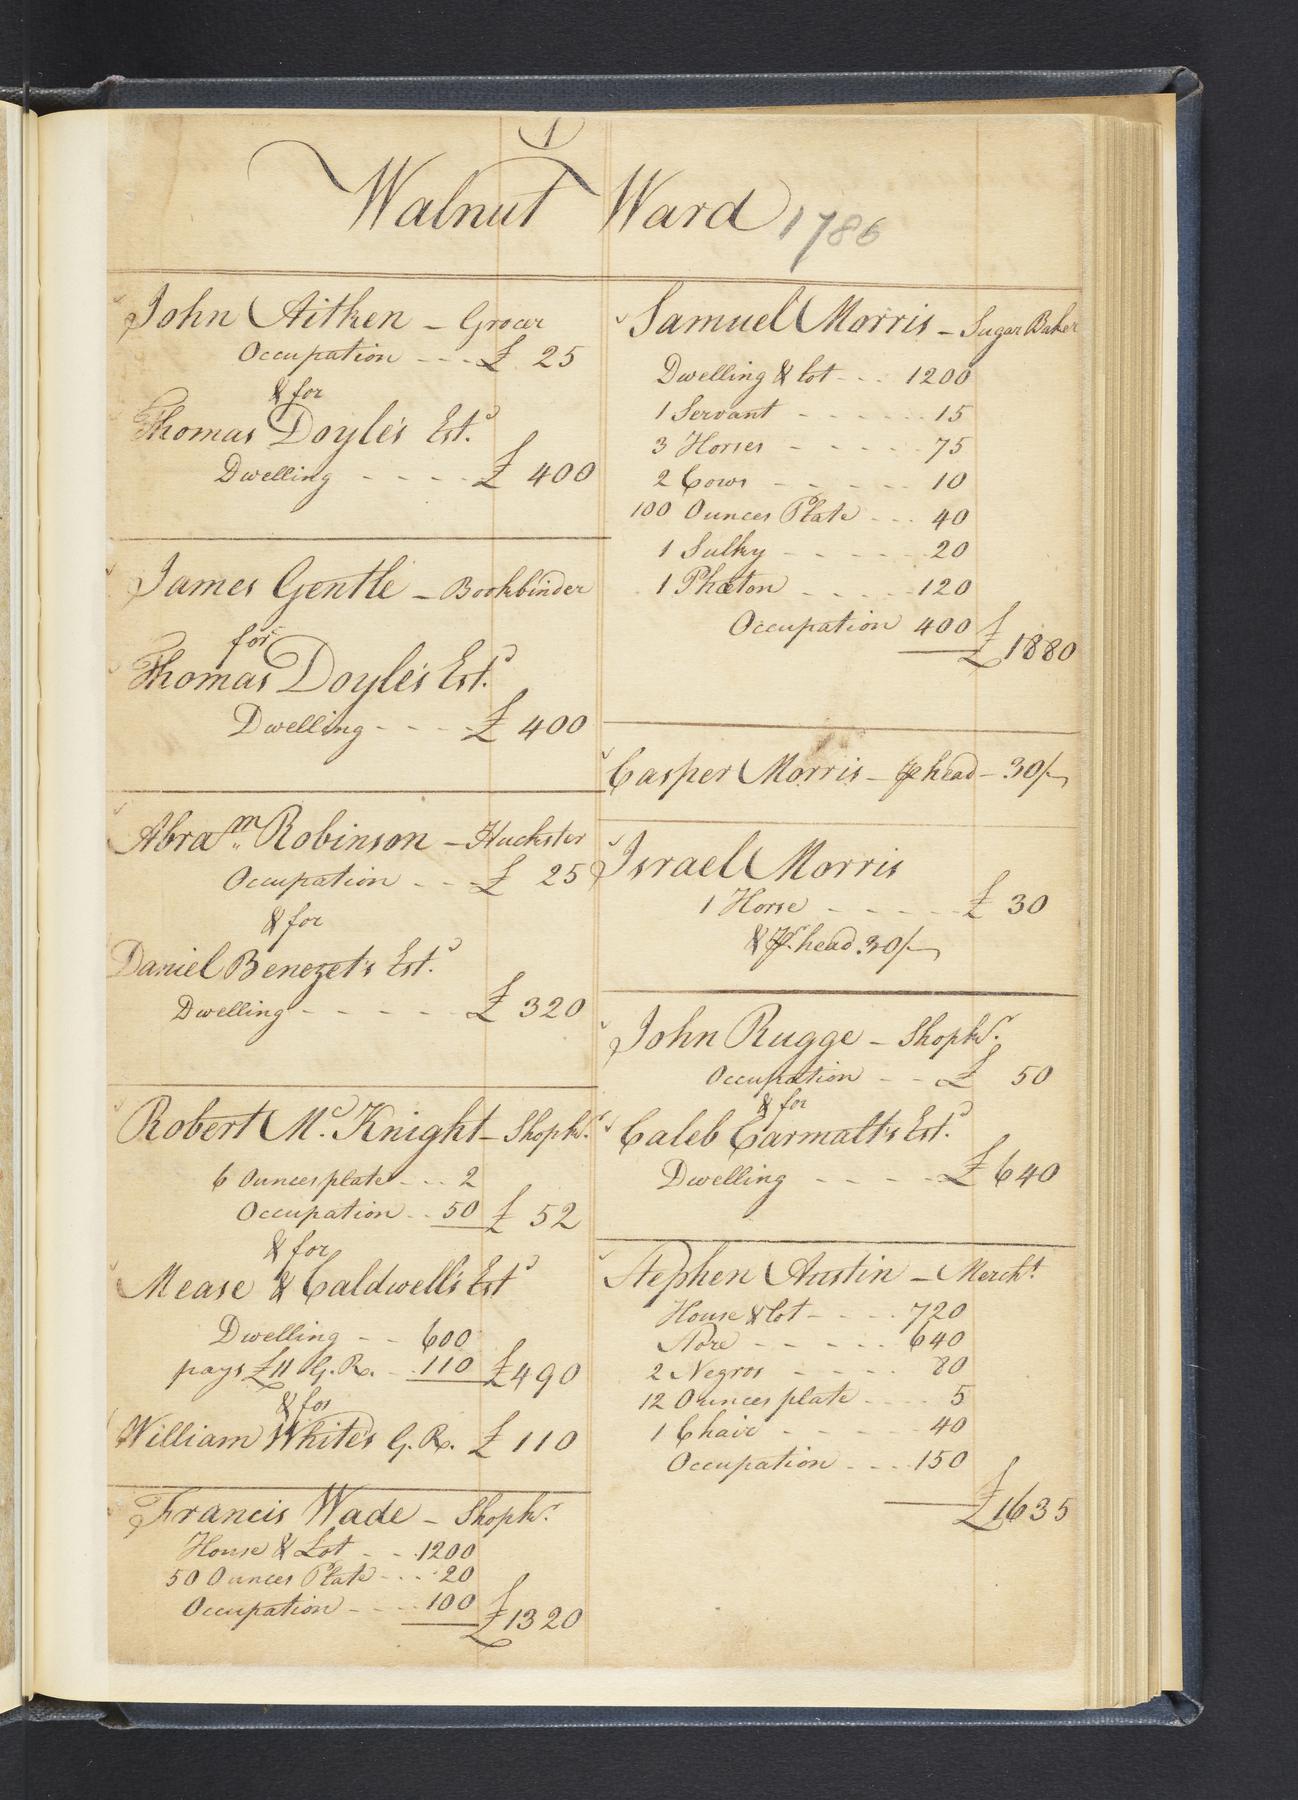 1
Walnut Ward 1786
John Aitken - Grocer
Occupation - - - £ 25
& for
Thomas Doyle's Estd.
Dwelling - - - - £ 400
James Gentle - Bookbinder
for
Thomas Doyle's Estd.
Dwelling - - - - £ 400
Abram. Robinson - Huckster
Occupation - - £ 25
& for
Daniel Benezet's Estd.
Dwelling - - - - - £ 320
Robert Mc. Knight - Shopkr.
6 Ounces plate - - - 2
Occupation - - 50 £ 52
& for
Mease & Caldwell's Estd
Dwelling - - 600
pays £11 G. R. - 110 £490
& for
William White's G. R. £ 110
Francis Wade - Shopkr.
House & Lot - - 1200
50 Ounces Plate - - - 20
Occupation - - - 100 £1320
Samuel Morris - Sugar Baker
Dwelling & lot - - - 1200
1 Servant - - - - - 15
3 Horses - - - - - 75
2 Cows - - - - - 10
100 Ounces Plate - - - 40
1 Sulky - - - - - 20
1 Phæton - - - - - 120
Occupation 400 £1880
Casper Morris - P head - 30/-
Israel Morris
1 Horse - - - - - £ 30
& Pr. head 30/-
John Rugge - Shopkr.
Occupation - - £ 50
& for
Caleb Carmalt's Estd.
Dwelling - - - - £640
Stephen Austin - Mercht.
House & lot - - - - 720
Store - - - - - 640
2 Negros - - - - 80
12 Ounces plate - - - - 5
1 Chair - - - - - 40
Occupation - - - 150
£1635